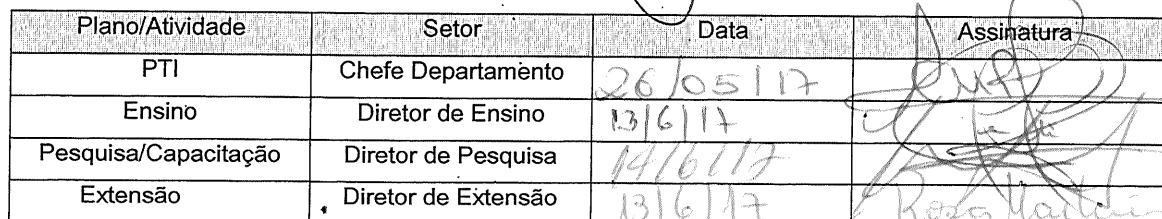 Plano/Atividade Setor Data Assinatura
PTI Chefe Departamento 26/05/17
Ensino Diretor de Ensino 13/6/17
Pesquisa/Capacitação Diretor de Pesquisa 14/6/17
Extensão Diretor de Extensão 13/6/17 Rosa